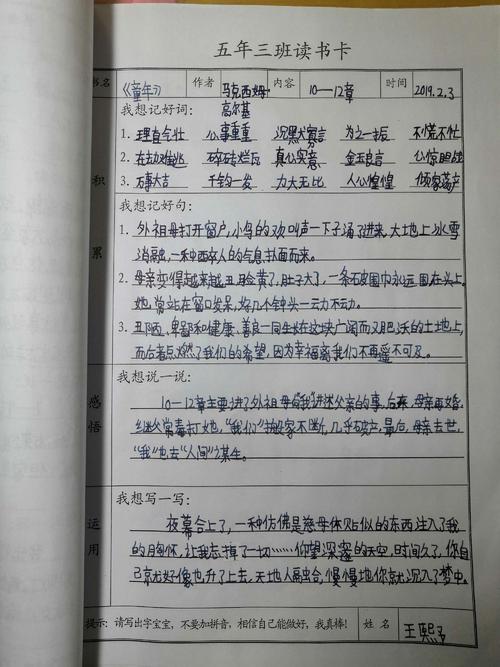 五年三班读书卡
书名 《童年》 作者 马克西姆·高尔基 内容 10—12章 时间 2019.2.3
我想记好词:
1. 理直气壮 心事重重 沉默寡言 为之一振 不慌不忙
2. 在劫难逃 碎砖烂瓦 真心实意 金玉良言 心惊胆战
3. 万事大吉 千钧一发 力大无比 人心惶惶 倾家荡产
积累
我想记好句:
1. 外祖母打开窗户,小鸟的欢叫声一下子涌了进来,大地上冰雪
消融,一种西卒人的气息扑面而来。
2. 母亲变得越来越丑,脸黄了,肚子大了,一条破围巾永远围在头上。
她常站在窗口发呆,好几个钟头一动不动。
3. 丑陋、卑鄙和健康、善良一同生长在这块广阔而又肥沃的土地上,
而后者点燃了我们的希望,因为幸福离我们不再遥不可及。
感悟
我想说一说:
10—12章主要讲了外祖母向"我"讲述父亲的事,后来,母亲再婚,
继父常毒打她,"我们"搬家不断,几乎破产,最后,母亲去世,
"我"也去"人间"谋生。
运用
我想写一写:
夜幕合上了,一种仿佛是慈母体贴似的东西注入了我
的胸怀,让我忘掉了一切……仰望深邃的天空,时间久了,你自
己就好像也升了上去,天地人融合,慢慢地你就沉入了梦中。
提示:请写出字宝宝,不要加拼音,相信自己能做好,我真棒! 姓名 王熙予